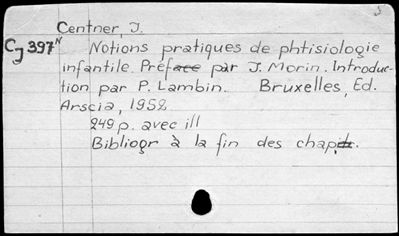 5
Centner, J.
Cj 397 N
Notions pratiques de phtisiologie
infantile. Préface par J. Morin. Introduc-
tion par P. Lambin. Bruxelles, Ed.
Arscia, 1952.
249 p. avec ill
Bibliogr à la fin des chap.